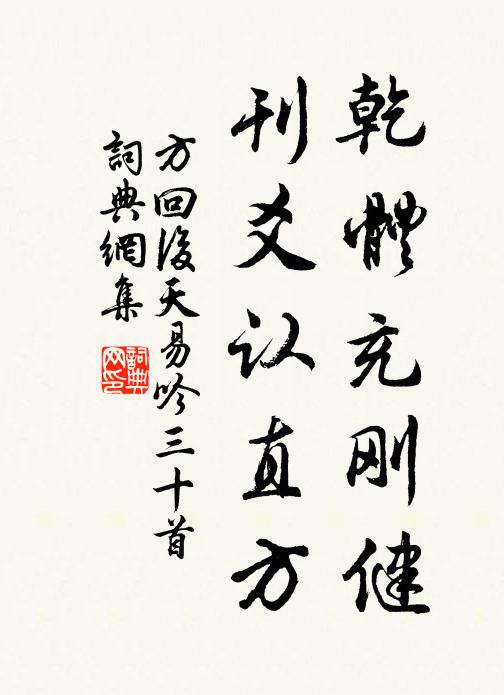 乾體充刚健
刊爻认直方
方回後天易吟三十首
詞典網集
詞典网印